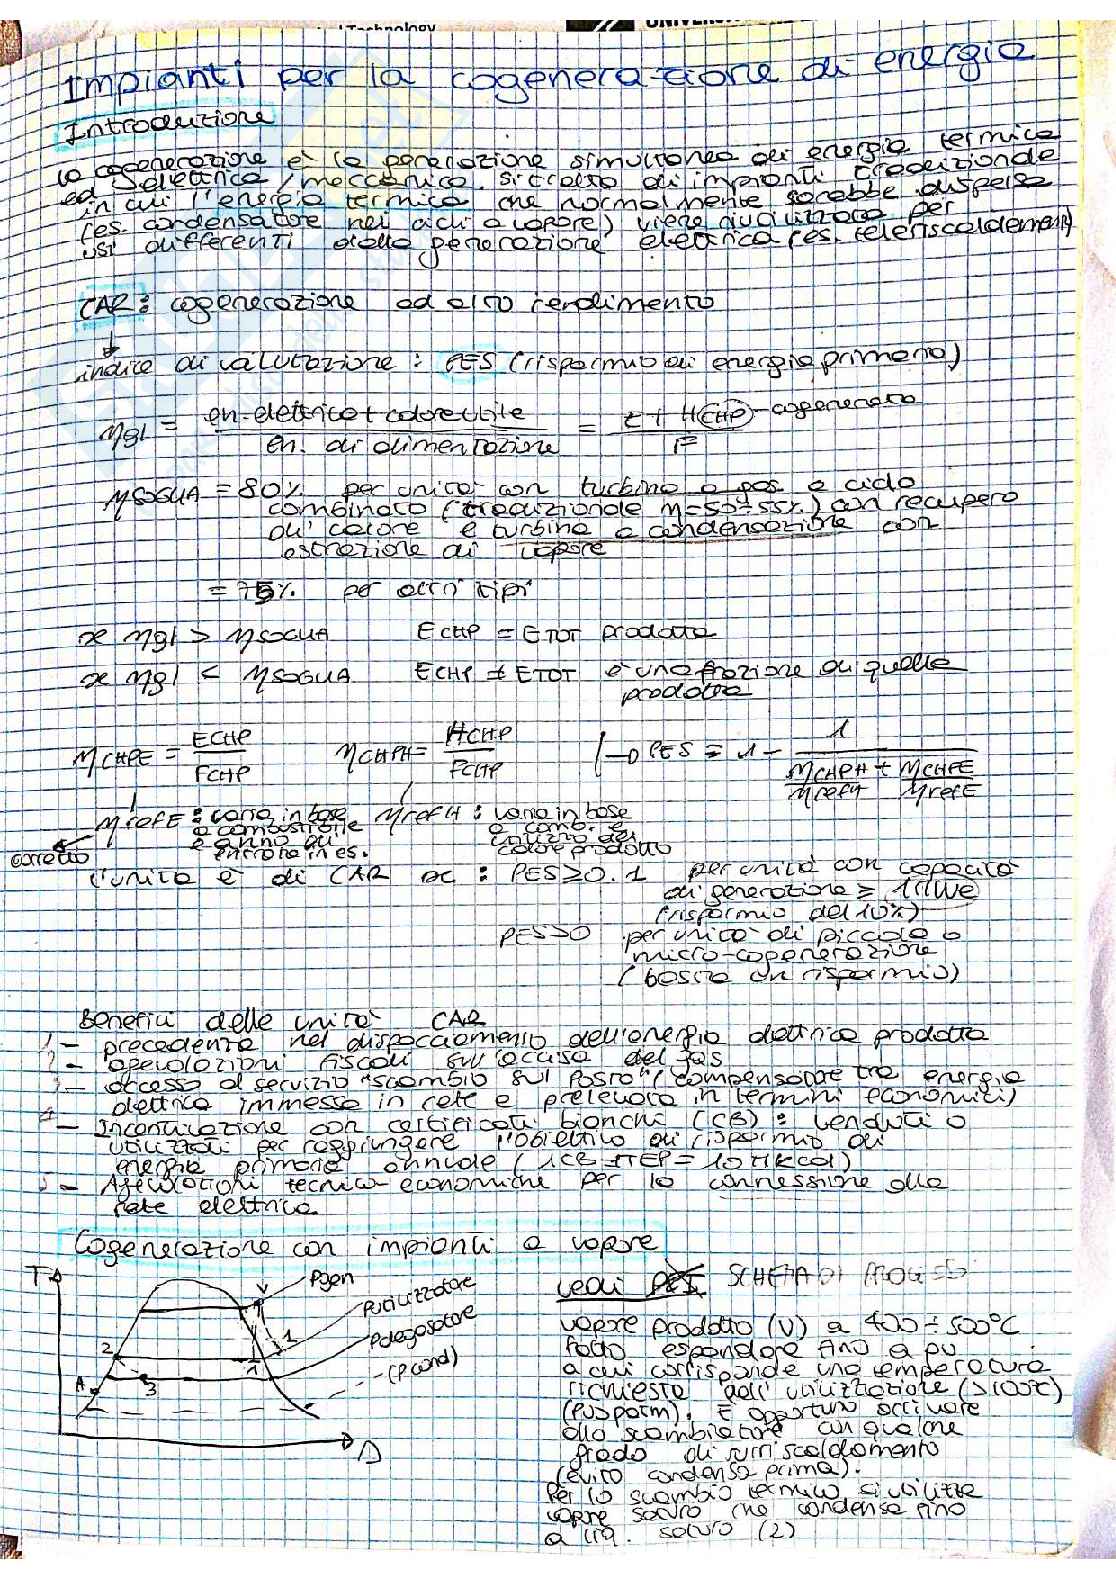 Technology
UNIVERS
Impianti per la cogenerazione di energia
Introduzione
La cogenerazione è la generazione simultanea di energia termica
ed elettrica/meccanica. Si tratta di impianti tradizionali
in cui l'energia termica che normalmente sarebbe dispersa
(es. condensatore nei cicli a vapore) viene riutilizzata per
usi differenti dalla generazione elettrica (es. teleriscaldamento)
CAR: cogenerazione ad alto rendimento
indice di valutazione: PES (risparmio di energia primaria)
ηgl = en. elettrica + calore utile / en. di alimentazione = E + HCHP / F - cogenerato
ηSOGLIA = 80% per unità con turbina a gas a ciclo
combinato (tradizionale η=50÷55%) con recupero
di calore e turbina a condensazione con
estrazione di vapore
= 75% per altri tipi
se ηgl > ηSOGLIA ECHP = ETOT prodotta
se ηgl < ηSOGLIA ECHP ≠ ETOT è una frazione di quella
prodotta
ηCHPE = ECHP / FCHP ηCHPH = HCHP / FCHP → PES = 1 - 1 / (ηCHPH / ηrefH + ηCHPE / ηrefE)
ηrefE : varia in base ηrefH : varia in base
a combustibile a comb. e
e anno di utilizzo del
entrata in es. calore prodotto
corretto
l'unità è di CAR se : PES≥0.1 per unità con capacità
di generazione ≥ 1MWe
(risparmio del 10%)
PES>0 per unità di piccola o
micro-cogenerazione
(basta un risparmio)
Benefici delle unità CAR
1- precedenza nel dispacciamento dell'energia elettrica prodotta
2- agevolazioni fiscali sull'accisa del gas
3- accesso al servizio "scambio sul posto" (compensazione tra energia
elettrica immessa in rete e prelevata in termini economici)
4- Incentivazione con certificati bianchi (CB): venduti o
utilizzati per raggiungere l'obiettivo di risparmio di
energia primaria annuale (1CB=1TEP=10⁷kcal)
5- Agevolazioni tecnico-economiche per la connessione alla
rete elettrica.
Cogenerazione con impianti a vapore
T
V
Pgen
Putilizzatore
Pdegasatore
(Pcond)
1
1
2
3
A
s
vedi SCHEMA DI PROCESSO
vapore prodotto (V) a 400÷500°C
fatto espandere fino a pu
a cui corrisponde una temperatura
richiesta dall'utilizzatore (>100°C)
(pu>patm). È opportuno arrivare
allo scambiatore con qualche
grado di surriscaldamento
(evito condensa prima).
Per lo scambio termico si utilizza
vapore saturo che condensa fino
a liq. saturo (2)